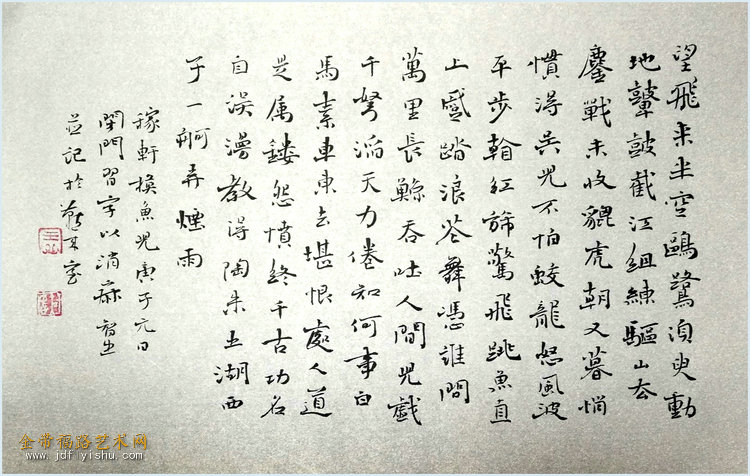 望飛來半空鷗鷺須臾動
地鼙鼓截江組練驅山去
鏖戰未收貔虎朝又暮悄
慣得吳兒不怕蛟龍怒風波
平步看紅旆驚飛跳魚直
上蹙踏浪花舞憑誰問
萬里長鯨吞吐人間兒戲
千弩滔天力倦知何事白
馬素車東去堪恨處人道
是属鏤怨憤終千古功名
自誤漫教得陶朱五湖西
子一舸弄煙雨
稼軒摸魚兒庚子元日
閉門習字以消寂
並記於室
金带福路艺术网
www.jdf.yishu.com